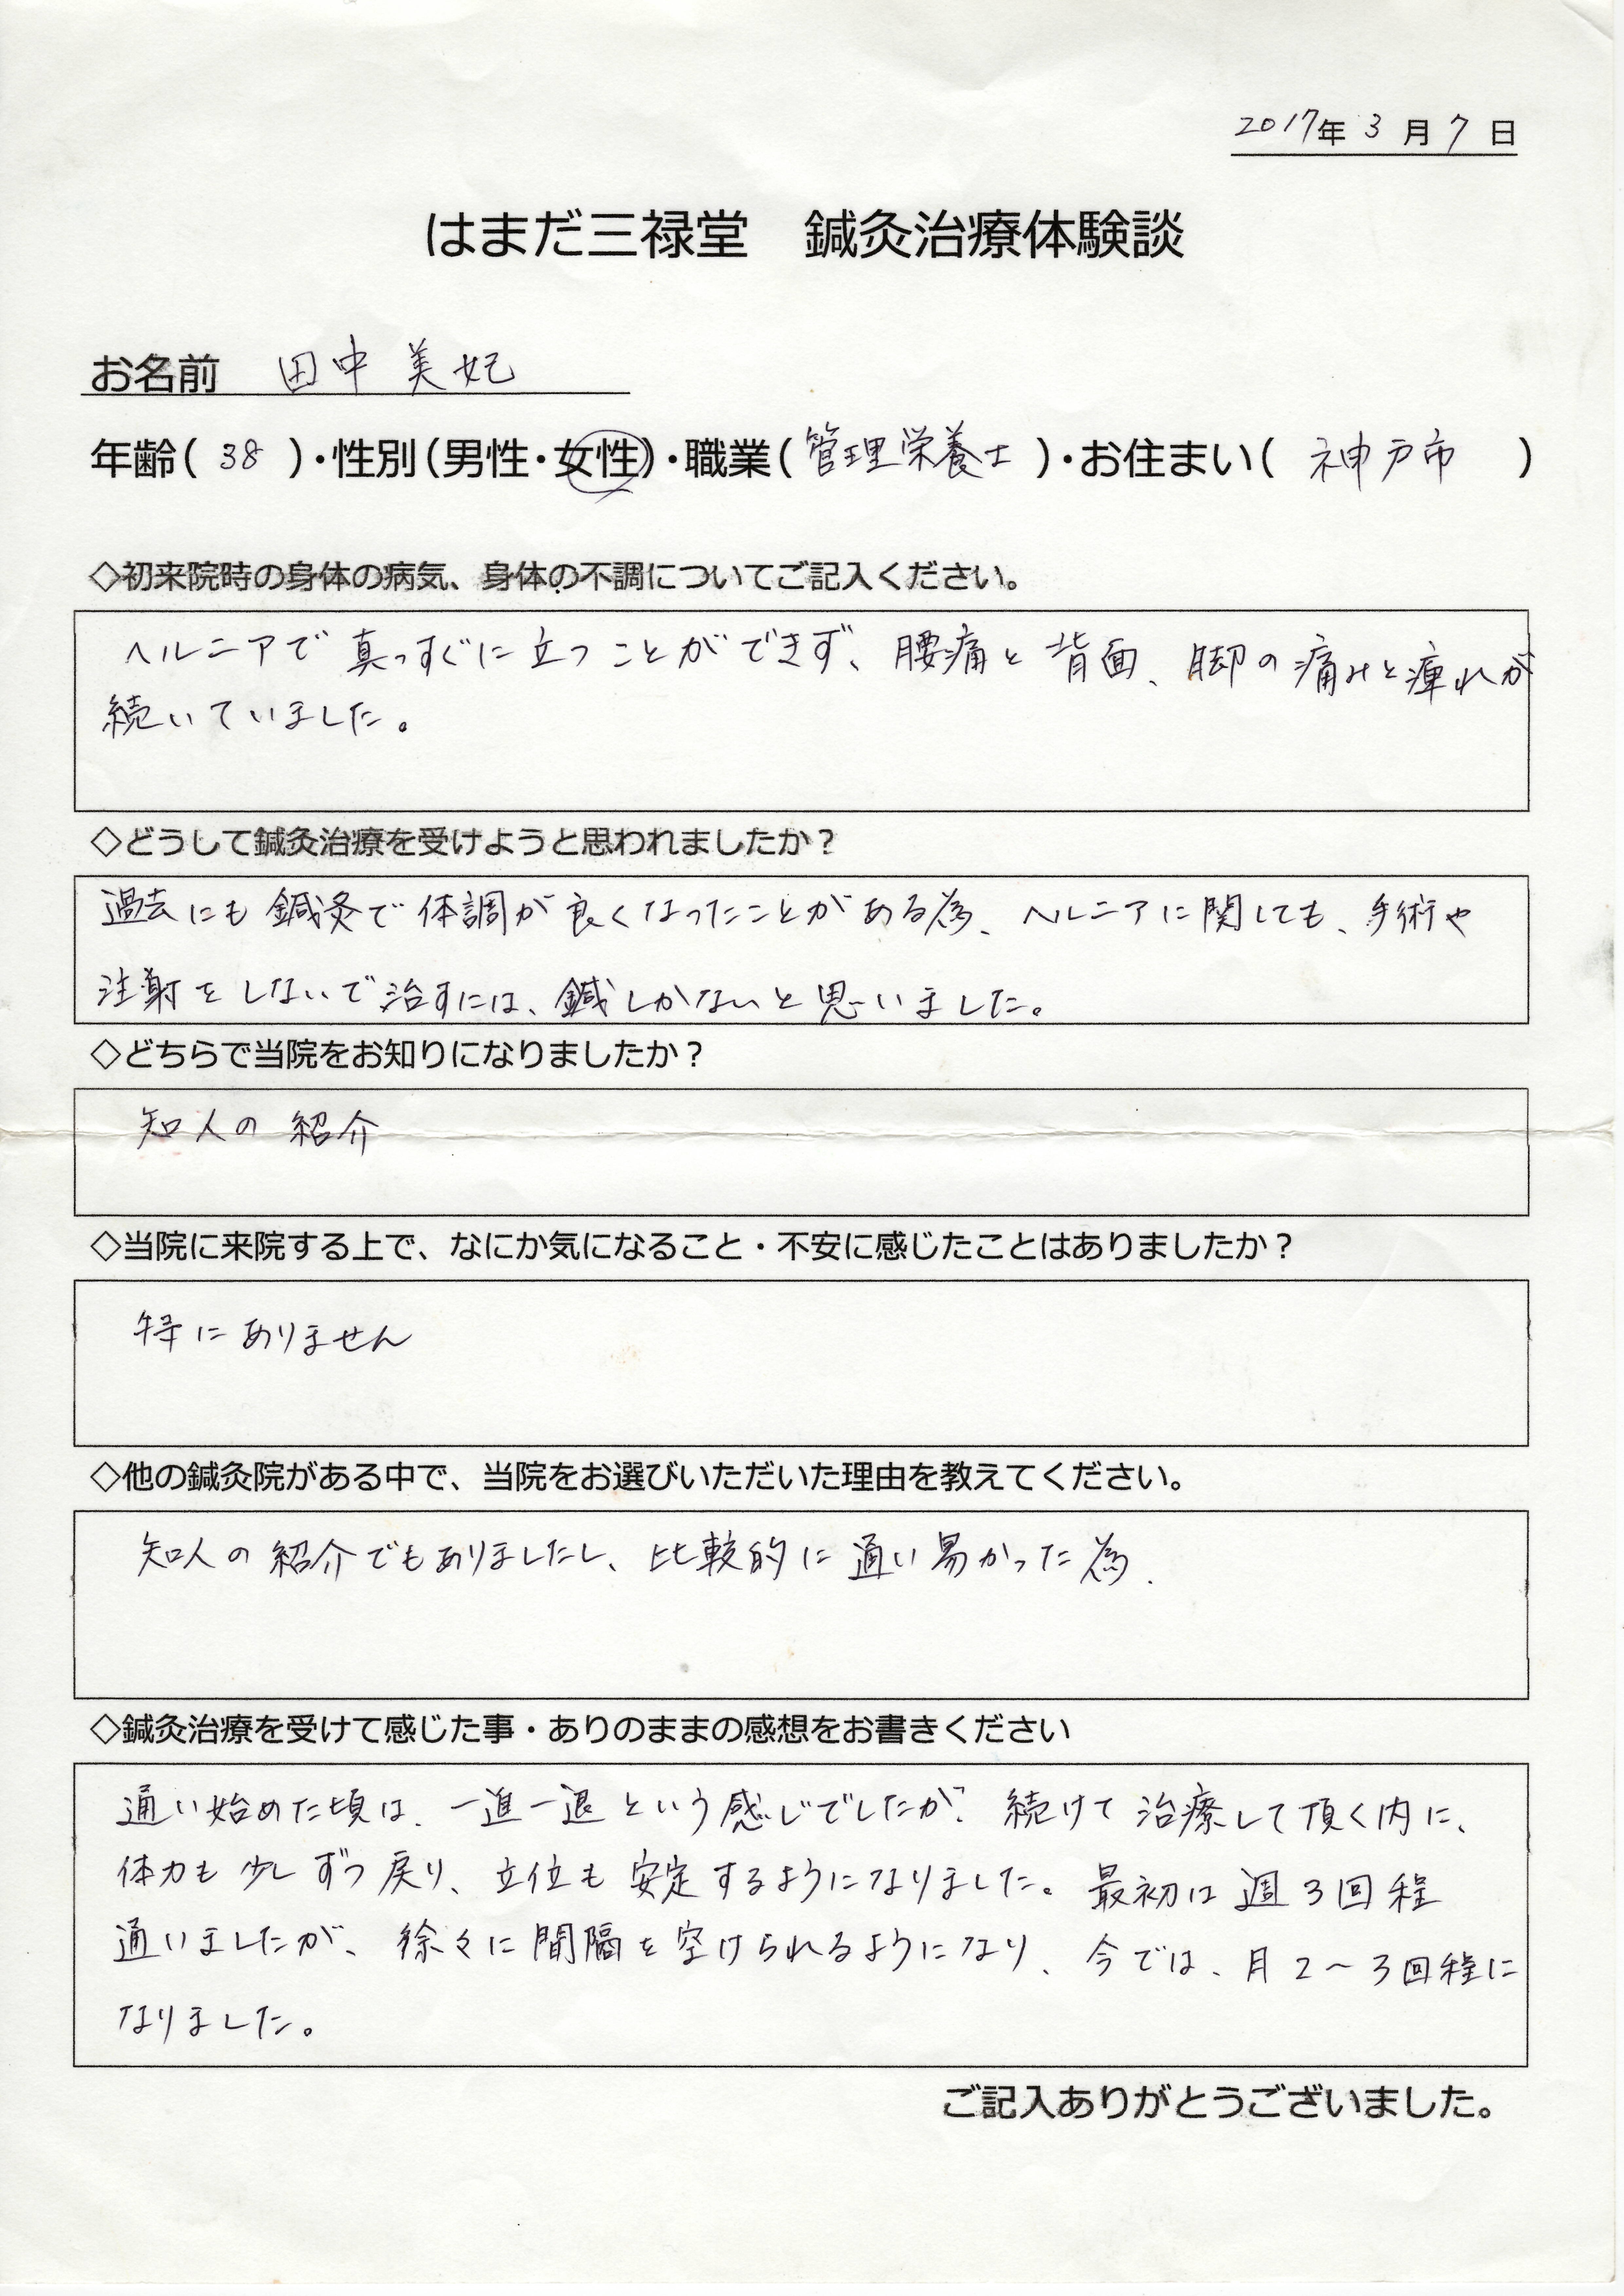 2017年 3 月 7 日
はまだ三禄堂　鍼灸治療体験談
お名前　田中 美妃
年齢( 38 )・性別(男性・女性)・職業( 管理栄養士 )・お住まい( 神戸市 )
◇初来院時の身体の病気、身体の不調についてご記入ください。
ヘルニアで真っすぐに立つことができず、腰痛と背面、脚の痛みと痺れが
続いていました。
◇どうして鍼灸治療を受けようと思われましたか？
過去にも鍼灸で体調が良くなったことがある為、ヘルニアに関しても、手術や
注射をしないで治すには、鍼しかないと思いました。
◇どちらで当院をお知りになりましたか？
知人の紹介
◇当院に来院する上で、なにか気になること・不安に感じたことはありましたか？
特にありません
◇他の鍼灸院がある中で、当院をお選びいただいた理由を教えてください。
知人の紹介でもありましたし、比較的に通い易かった為.
◇鍼灸治療を受けて感じた事・ありのままの感想をお書きください
通い始めた頃は、一進一退という感じでしたが、続けて治療して頂く内に、
体力も少しずつ戻り、立位も安定するようになりました。最初は週3回程
通いましたが、徐々に間隔を空けられるようになり、今では、月2〜3回程に
なりました。
ご記入ありがとうございました。